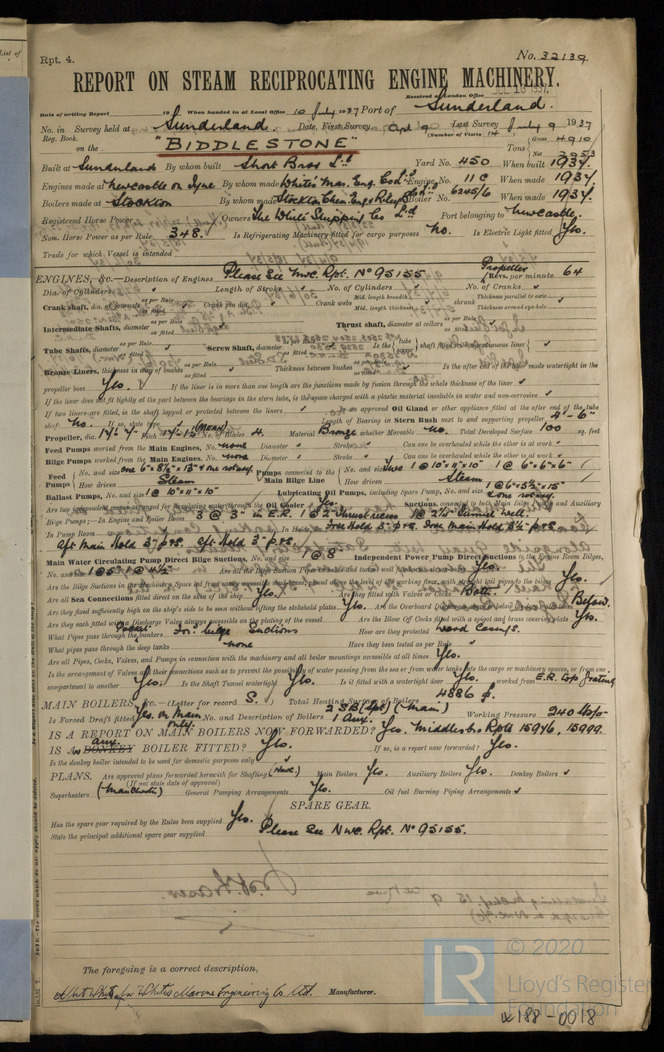 Rpt. 4.
No. 32139
REPORT ON STEAM RECIPROCATING ENGINE MACHINERY.
Received at London Office
Date of writing Report 19 When handed in at Local Office 10 July 1937 Port of Sunderland.
No. in Survey held at Sunderland. Date, First Survey Last Survey July 9 1937
Reg. Book. (Number of Visits 14)
on the "BIDDLESTONE" Tons Gross 4910 Net
Built at Sunderland By whom built Short Bros Ld. Yard No. 450 When built 1937.
Engines made at Newcastle on Tyne By whom made White's Mar. Eng. Co Ld. Engine No. 11C When made 1937.
Boilers made at Stockton By whom made Stockton Chem. Engs & Riley Boilers Ld Boiler No. 6345/6 When made 1937.
Registered Horse Power Owners The White Shipping Co Ld Port belonging to Newcastle.
Nom. Horse Power as per Rule 348. Is Refrigerating Machinery fitted for cargo purposes No. Is Electric Light fitted Yes.
Trade for which Vessel is intended
ENGINES, &c.—Description of Engines Please See Nwc. Rpt. No 95155 Propeller Revs. per minute 64
Dia. of Cylinders Length of Stroke No. of Cylinders No. of Cranks
Crank shaft, dia. of journals as per Rule as fitted Crank pin dia. Crank webs Mid. length breadth Mid. length thickness shrunk Thickness parallel to axis Thickness around eye-hole
Intermediate Shafts, diameter as per Rule as fitted Thrust shaft, diameter at collars as per Rule as fitted
Tube Shafts, diameter as per Rule as fitted Screw Shaft, diameter as per Rule as fitted Is the tube screw shaft fitted with a continuous liner
Bronze Liners, thickness in way of bushes as per Rule as fitted Thickness between bushes as per Rule as fitted Is the after end of the liner made watertight in the
propeller boss Yes. If the liner is in more than one length are the junctions made by fusion through the whole thickness of the liner
If the liner does not fit tightly at the part between the bearings in the stern tube, is the space charged with a plastic material insoluble in water and non-corrosive
If two liners are fitted, is the shaft lapped or protected between the liners Is an approved Oil Gland or other appliance fitted at the after end of the tube
shaft No. If so, state type Length of Bearing in Stern Bush next to and supporting propeller 4'-6"
Propeller, dia. Pitch (Mean) No. of Blades 4. Material Bronze whether Moveable No. Total Developed Surface 100 sq. feet
Feed Pumps worked from the Main Engines, No. none Diameter Stroke Can one be overhauled while the other is at work
Bilge Pumps worked from the Main Engines, No. none Diameter Stroke Can one be overhauled while the other is at work
Feed Pumps No. and size one 6" x 8½" x 13" & one rotary. How driven Steam Pumps connected to the Main Bilge Line No. and size Two 1 @ 10"x11"x10" 1 @ 6"x6"x6" How driven Steam
Ballast Pumps, No. and size 1 @ 10"x11"x10" Lubricating Oil Pumps, including Spare Pump, No. and size & one rotary.
Are two independent means arranged for circulating water through the Oil Cooler Yes Suctions, connected to both Main Bilge Pumps and Auxiliary
Bilge Pumps;—In Engine and Boiler Room 3 @ 3" in E.R. 1 @ 2" Thrust recess 1 @ 2½" Tunnel Well.
In Pump Room In Holds, &c. Fore Hold 3" p&s. Fore Main Hold 3½" p&s.
Aft Main Hold 3" p&s. Aft Hold 3" p&s.
Main Water Circulating Pump Direct Bilge Suctions, No. and size 1 @ 8 Independent Power Pump Direct Suctions to the Engine Room Bilges,
No. and size 1 @ 5" 1 @ 4½" Are all the Bilge Suction Pipes in Holds and Tunnel Well fitted with strum boxes Yes.
Are the Bilge Suctions in the Machinery Space led from easily accessible mud boxes, placed above the level of the working floor, with straight tail pipes to the bilges Yes.
Are all Sea Connections fitted direct on the skin of the ship Yes. Are they fitted with Valves or Cocks Both.
Are they fixed sufficiently high on the ship's side to be seen without lifting the stokehold plates Yes. Are the Overboard Discharges above or below the deep water line Below.
Are they each fitted with a Discharge Valve always accessible on the plating of the vessel Are the Blow Off Cocks fitted with a spigot and brass covering plate Yes.
What Pipes pass through the bunkers For. bilge Suctions How are they protected Wood casings.
What pipes pass through the deep tanks none Have they been tested as per Rule
Are all Pipes, Cocks, Valves, and Pumps in connection with the machinery and all boiler mountings accessible at all times Yes.
Is the arrangement of Valves and their connections such as to prevent the possibility of water passing from the sea or from water tanks into the cargo or machinery spaces, or from one
compartment to another Yes. Is the Shaft Tunnel watertight Yes. Is it fitted with a watertight door Yes. worked from E.R. Top Grating
MAIN BOILERS, &c.—(Letter for record S.) Total Heating Surface of Boilers 4886 ф.
Is Forced Draft fitted Yes. on Main only. No. and Description of Boilers 2 SB (Main) 1 Aux. Working Pressure 240
IS A REPORT ON MAIN BOILERS NOW FORWARDED? Yes. Middlesbro Rpts 15946, 15999.
IS A aux DONKEY BOILER FITTED? Yes. If so, is a report now forwarded? Yes.
Is the donkey boiler intended to be used for domestic purposes only
PLANS. Are approved plans forwarded herewith for Shafting (Nwc.) Main Boilers Yes. Auxiliary Boilers Yes. Donkey Boilers
(If not state date of approval)
Superheaters (Manchester) General Pumping Arrangements Yes. Oil fuel Burning Piping Arrangements
SPARE GEAR.
Has the spare gear required by the Rules been supplied Yes.
State the principal additional spare gear supplied Please See Nwc. Rpt. No 95155.
The foregoing is a correct description,
for Whites Marine Engineering Co Ltd. Manufacturer.
© 2020
LR
Lloyd's Register
Foundation
188-0018